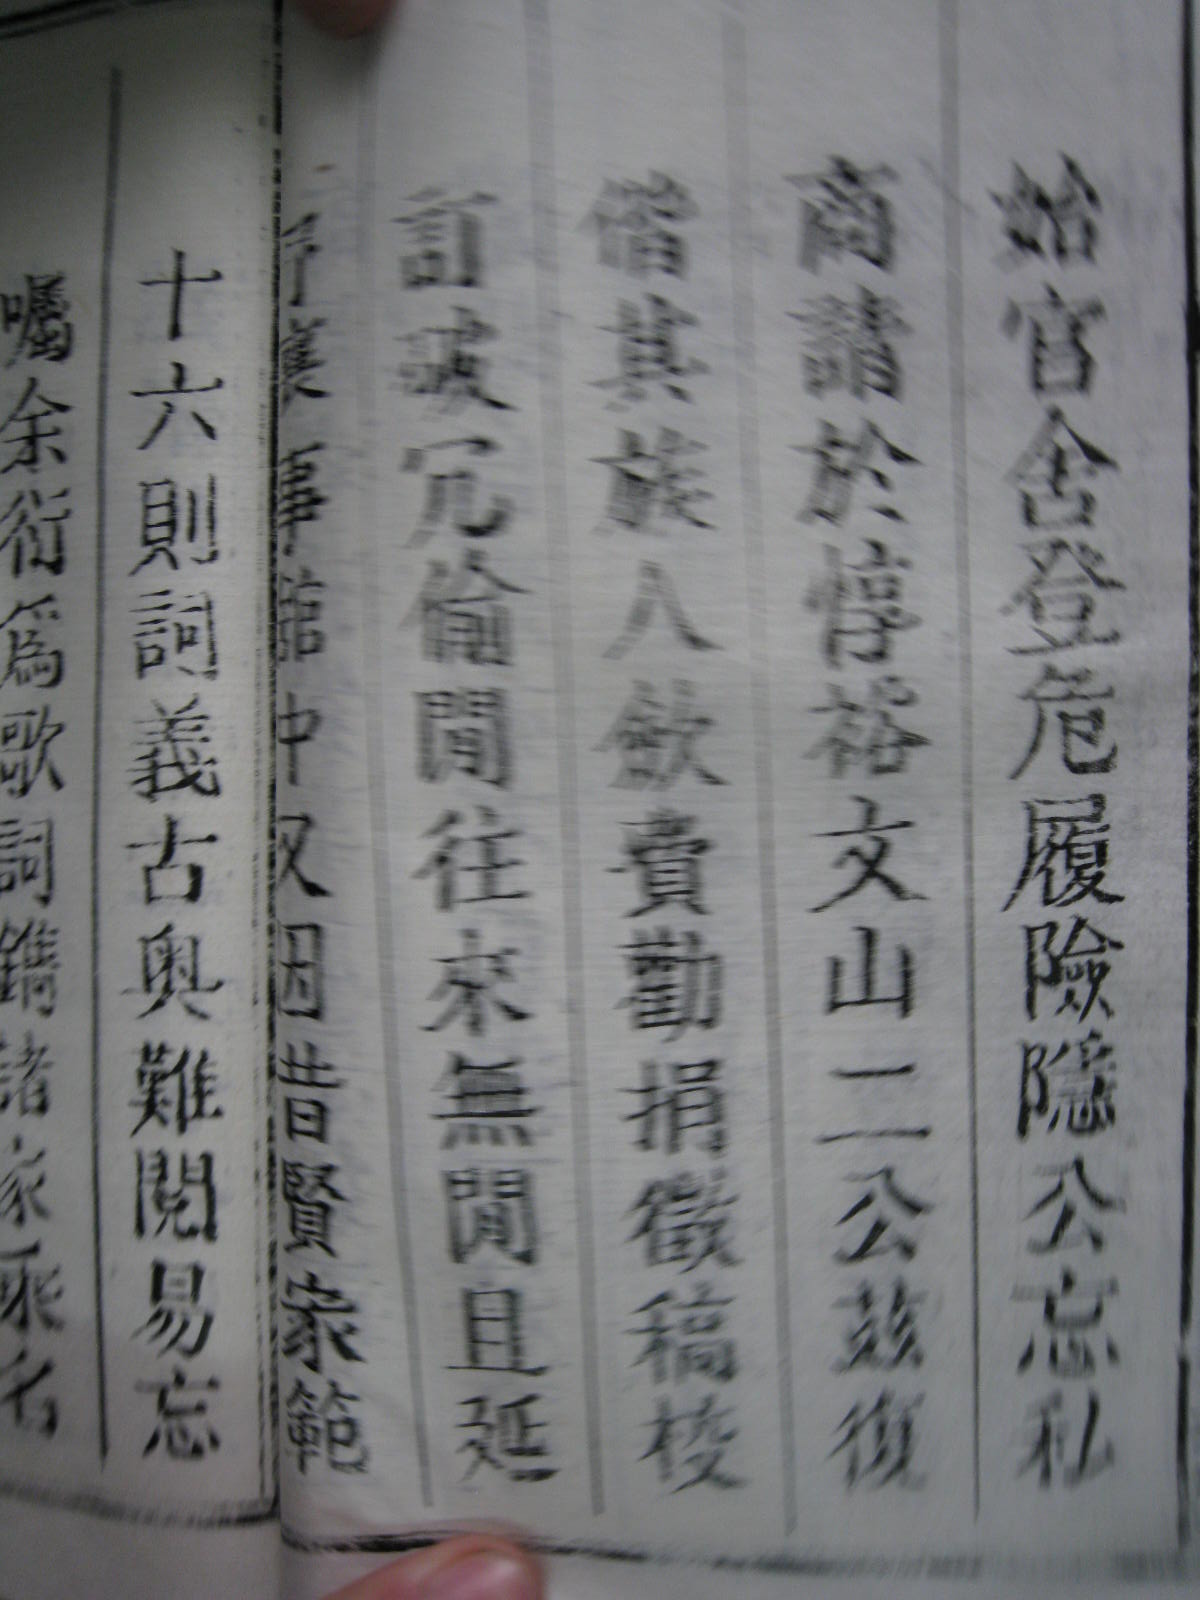 始官舍登危履險隱公忘私
商請於惇裕文山二公茲復
偕其族人斂費勸捐徵稿校
訂破冗偷閒往來無閒且延
予襄事館中又因昔賢家範
十六則詞義古奧難閱易忘
囑余衍爲歌詞鐫諸家乘名